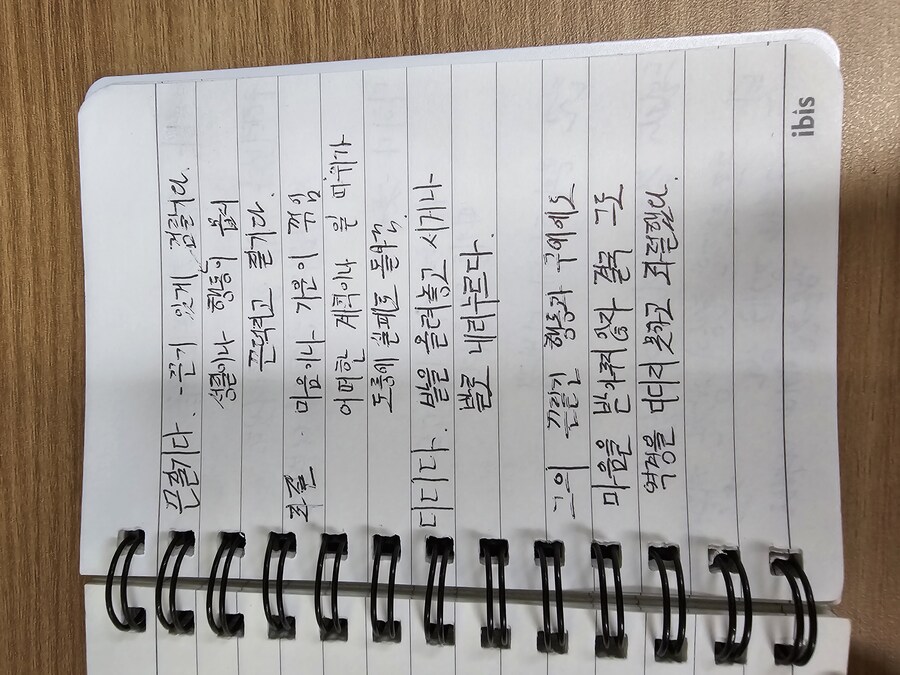 끈질기다. - 끈기 있게 검질기다.
성질이나 행동이 몹시
끈덕지고 질기다.
좌절 마음이나 기운이 꺾임.
어떠한 계획이나 일 따위가
도중에 실패로 돌아감.
디디다. 발을 올려놓고 서거나
발로 내리누르다.
그의 끈질긴 행동과 구애에도
마음을 받아주지 않자 결국 그도
역경을 디디지 못하고 좌절했다.
ibis